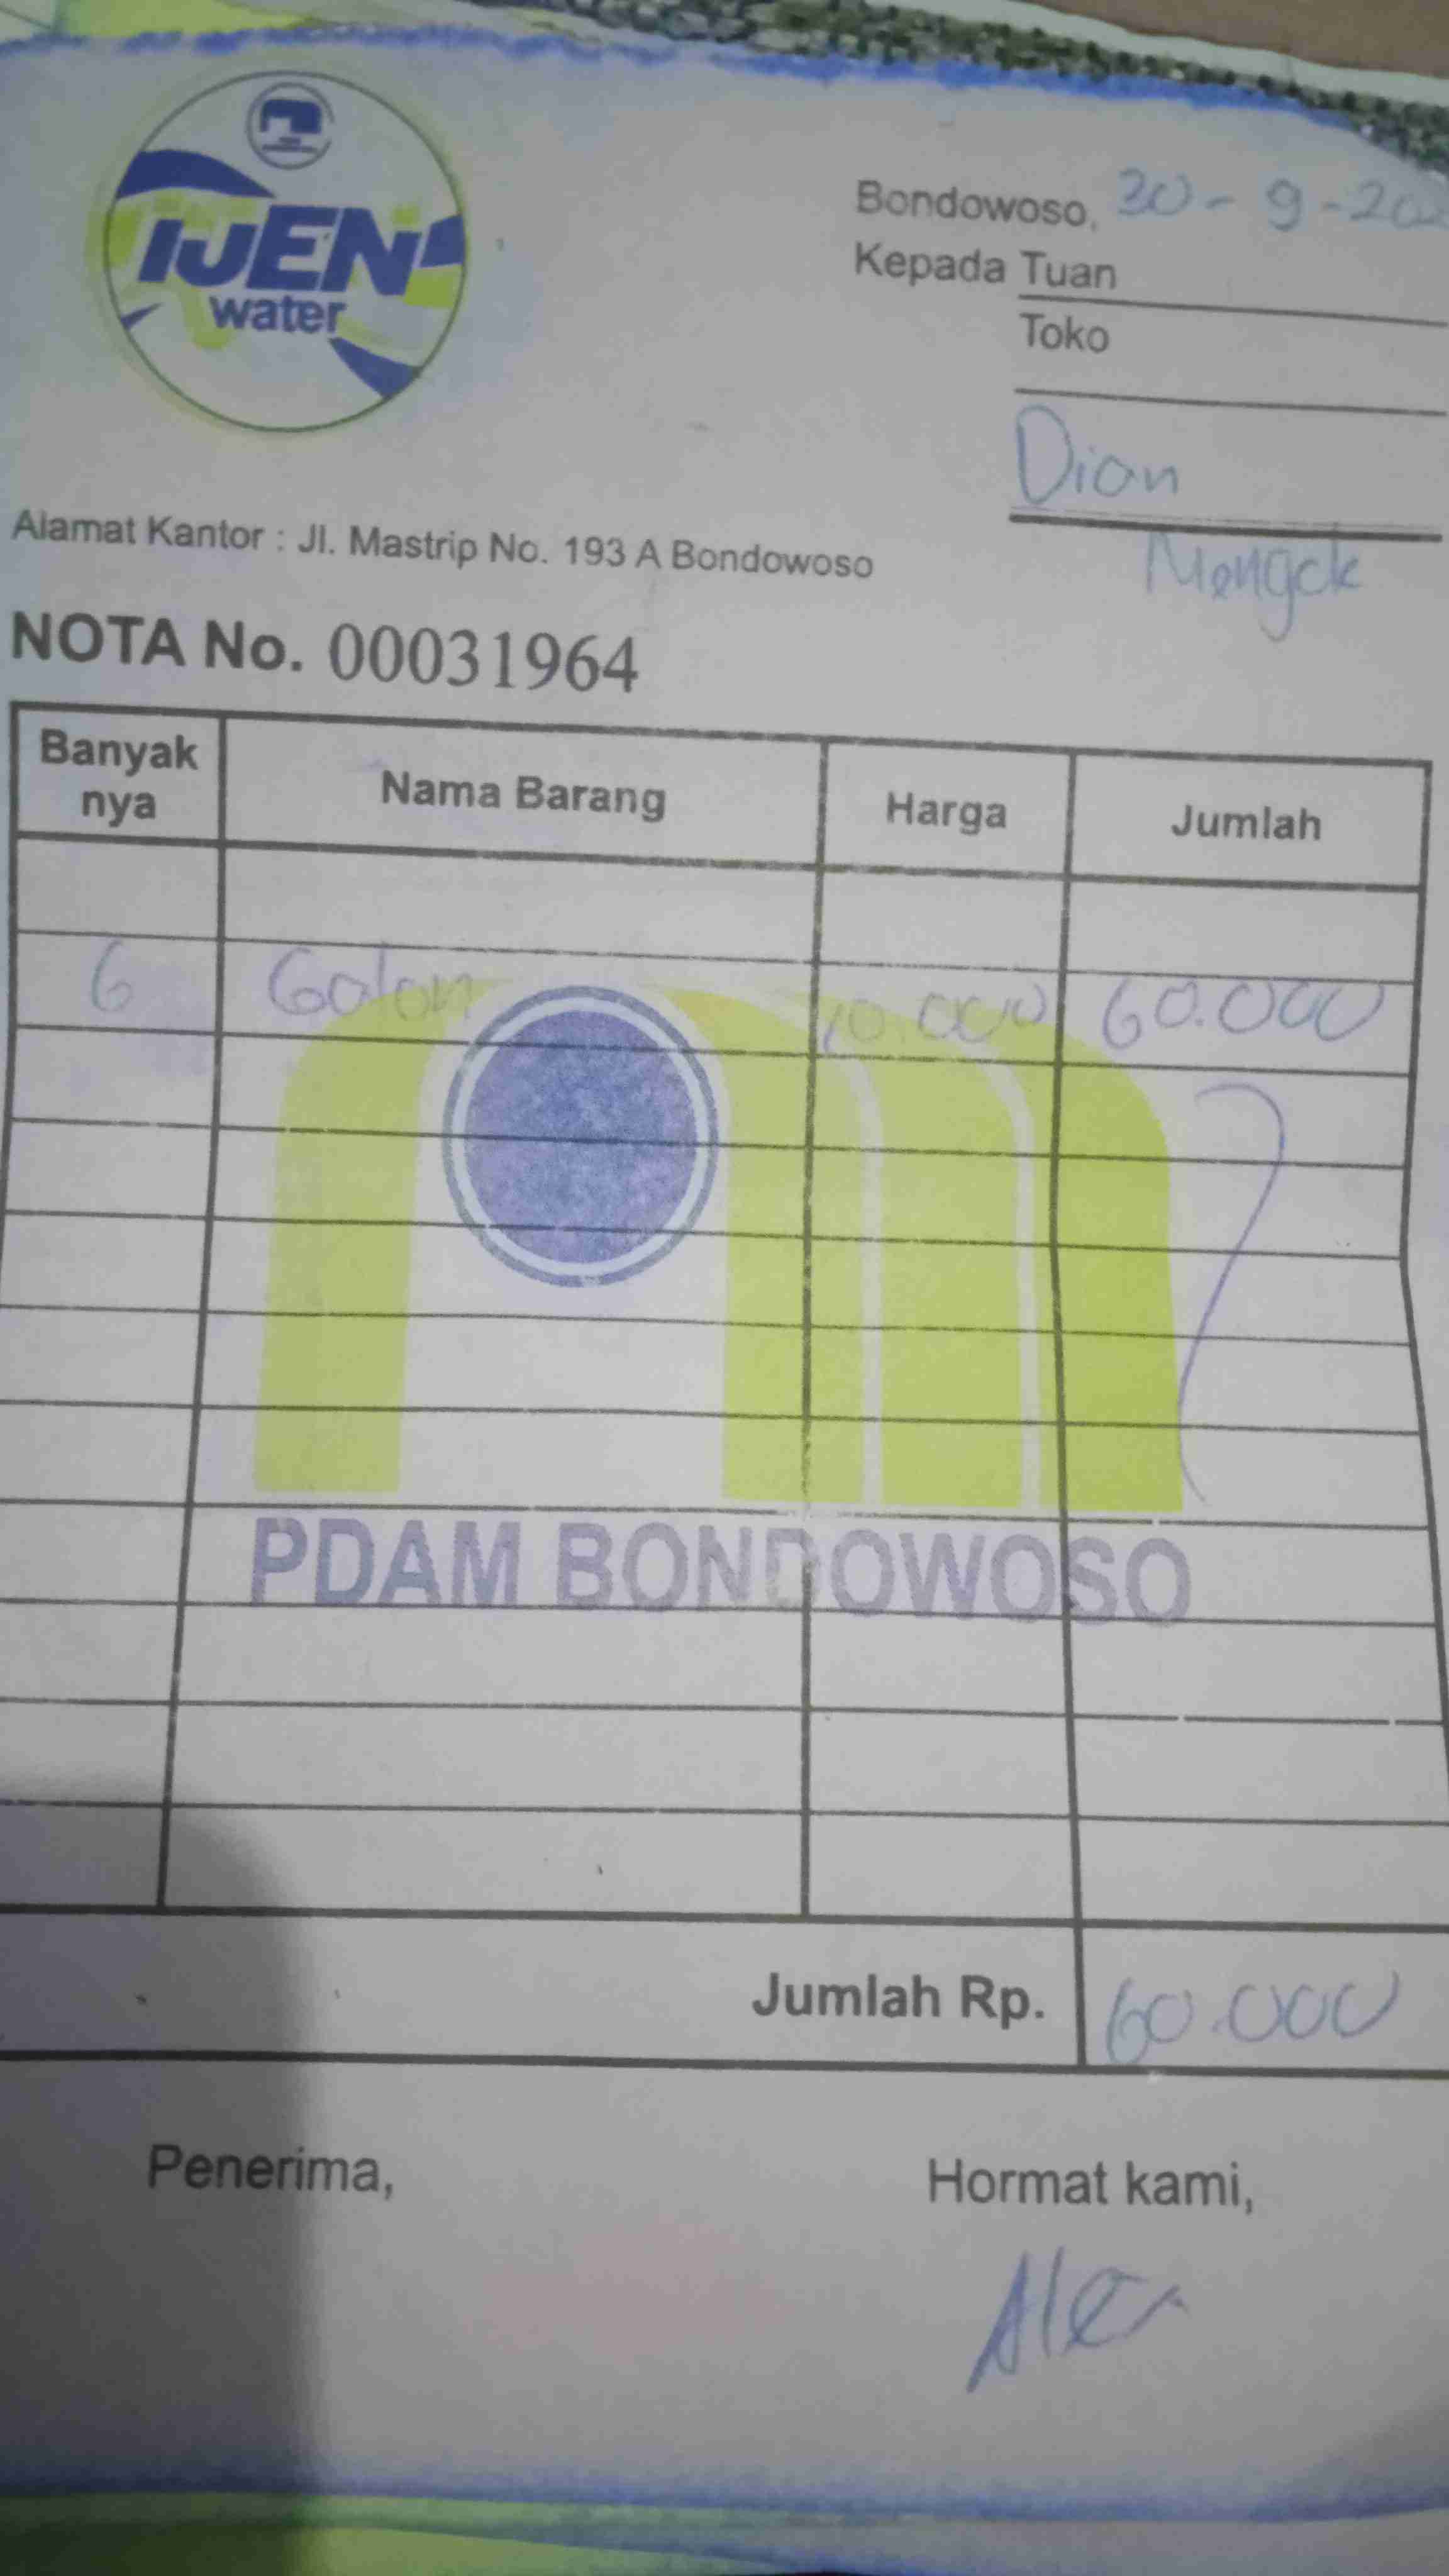 IJEN
water
Bondowoso, 30 - 9 - 202
Kepada Tuan
Toko
Dian
Alamat Kantor : Jl. Mastrip No. 193 A Bondowoso
NOTA No. 00031964
Banyak nya Nama Barang Harga Jumlah
6 Galon 10.000 60.000
PDAM BONDOWOSO
Jumlah Rp. 60.000
Penerima, Hormat kami,
Alex